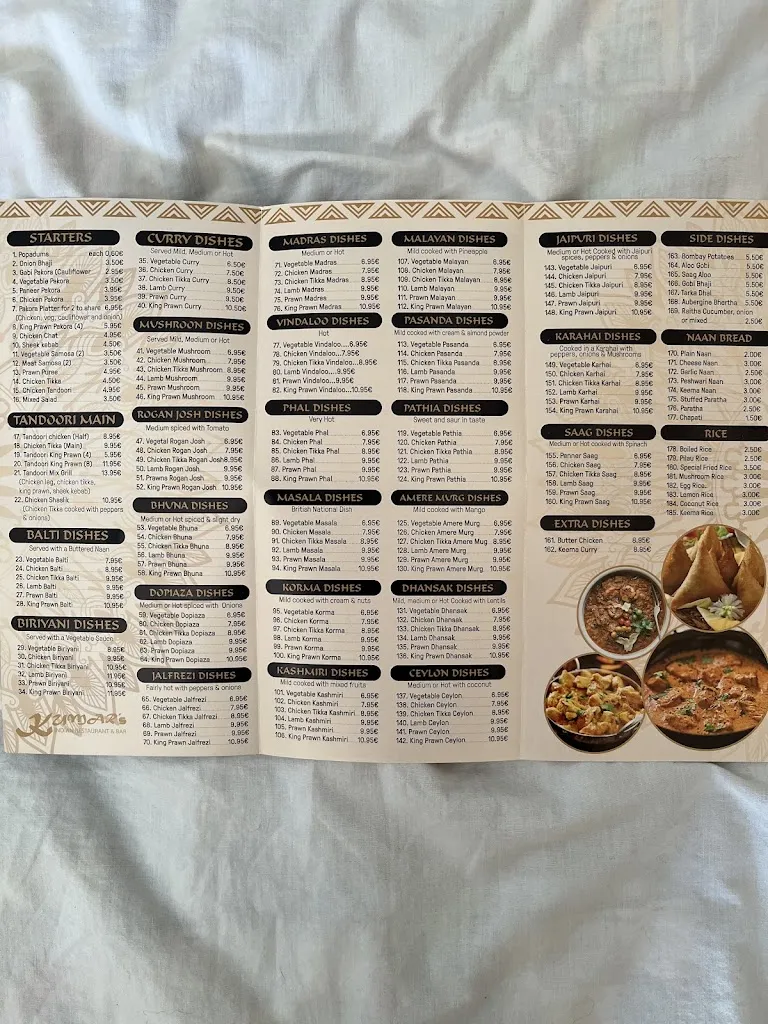 STARTERS
1. Popadums each 0,60€
2. Onion Bhaji 3.50€
3. Gobi Pakora (Cauliflower 2.95€
4. Vegetable Pakora 3.50€
5. Paneer Pakora 3.95€
6. Chicken Pakora 3.95€
7. Pakora Platter for 2 to share 6.95€
(Chicken, veg, cauliflower and onion)
8. King Prawn Pakora (4) 5.95€
9. Chicken Chat 4.95€
10. Sheek kebab 4.50€
11. Vegetable Samosa (2) 3.50€
12. Meat Samosa (2) 3.50€
13. Prawn Puree 4.95€
14. Chicken Tikka 4.50€
15. Chicken Tandoori 4.95€
16. Mixed Salad 3.50€
TANDOORI MAIN
17. Tandoori chicken (Half) 8.95€
18. Chicken Tikka (Main) 9.95€
19. Tandoori King Prawn (4) 5.95€
20. Tandoori King Prawn (8) 11.95€
21. Tandoori Mix Grill 13.95€
(Chicken leg, chicken tikka,
king prawn, sheek kebab)
22. Chicken Shaslik 10.95€
(Chicken Tikka cooked with peppers
& onions)
BALTI DISHES
Served with a Buttered Naan
23. Vegetable Balti 7.95€
24. Chicken Balti 8.95€
25. Chicken Tikka Balti 9.95€
26. Lamb Balti 9.95€
27. Prawn Balti 9.95€
28. King Prawn Balti 10.95€
BIRIYANI DISHES
Served with a Vegetable Sauce
29. Vegetable Biriyani 8.95€
30. Chicken Biriyani 9.95€
31. Chicken Tikka Biriyani 10.95€
32. Lamb Biriyani 11.95€
33. Prawn Biriyani 10.95€
34. King Prawn Biriyani 11.95€
Kumar's
INDIAN RESTAURANT & BAR
CURRY DISHES
Served Mild, Medium or Hot
35. Vegetable Curry 6.50€
36. Chicken Curry 7.50€
37. Chicken Tikka Curry 8.50€
38. Lamb Curry 9.50€
39. Prawn Curry 9.50€
40. King Prawn Curry 10.50€
MUSHROOM DISHES
Served Mild, Medium or Hot
41. Vegetable Mushroom 6.95€
42. Chicken Mushroom 7.95€
43. Chicken Tikka Mushroom 8.95€
44. Lamb Mushroom 9.95€
45. Prawn Mushroom 9.95€
46. King Prawn Mushroom 10.95€
ROGAN JOSH DISHES
Medium spiced with Tomato
47. Vegetal Rogan Josh 6.95€
48. Chicken Rogan Josh 7.95€
49. Chicken Tikka Rogan Josh 8.95€
50. Lamb Rogan Josh 9.95€
51. Prawns Rogan Josh 9.95€
52. King Prawn Rogan Josh 10.95€
BHUNA DISHES
Medium or Hot spiced & slight dry
53. Vegetable Bhuna 6.95€
54. Chicken Bhuna 7.95€
55. Chicken Tikka Bhuna 8.95€
56. Lamb Bhuna 9.95€
57. Prawn Bhuna 9.95€
58. King Prawn Bhuna 10.95€
DOPIAZA DISHES
Medium or Hot spiced with Onions
59. Vegetable Dopiaza 6.95€
60. Chicken Dopiaza 7.95€
61. Chicken Tikka Dopiaza 8.95€
62. Lamb Dopiaza 9.95€
63. Prawn Dopiaza 9.95€
64. King Prawn Dopiaza 10.95€
JALFREZI DISHES
Fairly hot with peppers & onions
65. Vegetable Jalfrezi 6.95€
66. Chicken Jalfrezi 7.95€
67. Chicken Tikka Jalfrezi 8.95€
68. Lamb Jalfrezi 9.95€
69. Prawn Jalfrezi 9.95€
70. King Prawn Jalfrezi 10.95€
MADRAS DISHES
Medium or Hot
71. Vegetable Madras 6.95€
72. Chicken Madras 7.95€
73. Chicken Tikka Madras 8.95€
74. Lamb Madras 9.95€
75. Prawn Madras 9.95€
76. King Prawn Madras 10.95€
VINDALOO DISHES
Hot
77. Vegetable Vindaloo....6.95€
78. Chicken Vindaloo...7.95€
79. Chicken Tikka Vindaloo...8.95€
80. Lamb Vindaloo....9.95€
81. Prawn Vindaloo...9.95€
82. King Prawn Vindaloo...10.95€
PHAL DISHES
Very Hot
83. Vegetable Phal 6.95€
84. Chicken Phal 7.95€
85. Chicken Tikka Phal 8.95€
86. Lamb Phal 9.95€
87. Prawn Phal 9.95€
88. King Prawn Phal 10.95€
MASALA DISHES
British National Dish
89. Vegetable Masala 6.95€
90. Chicken Masala 7.95€
91. Chicken Tikka Masala 8.95€
92. Lamb Masala 9.95€
93. Prawn Masala 9.95€
94. King Prawn Masala 10.95€
KORMA DISHES
Mild cooked with cream & nuts
95. Vegetable Korma 6.95€
96. Chicken Korma 7.95€
97. Chicken Tikka Korma 8.95€
98. Lamb Korma 9.95€
99. Prawn Korma 9.95€
100. King Prawn Korma 10.95€
KASHMIRI DISHES
Mild cooked with mixed fruits
101. Vegetable Kashmiri 6.95€
102. Chicken Kashmiri 7.95€
103. Chicken Tikka Kashmiri 8.95€
104. Lamb Kashmiri 9.95€
105. Prawn Kashmiri 9.95€
106. King Prawn Kashmiri 10.95€
MALAYAN DISHES
Mild cooked with Pineapple
107. Vegetable Malayan 6.95€
108. Chicken Malayan 7.95€
109. Chicken Tikka Malayan 8.95€
110. Lamb Malayan 9.95€
111. Prawn Malayan 9.95€
112. King Prawn Malayan 10.95€
PASANDA DISHES
Mild cooked with cream & almond powder
113. Vegetable Pasanda 6.95€
114. Chicken Pasanda 7.95€
115. Chicken Tikka Pasanda 8.95€
116. Lamb Pasanda 9.95€
117. Prawn Pasanda 9.95€
118. King Prawn Pasanda 10.95€
PATHIA DISHES
Sweet and saur in taste
119. Vegetable Pathia 6.95€
120. Chicken Pathia 7.95€
121. Chicken Tikka Pathia 8.95€
122. Lamb Pathia 9.95€
123. Prawn Pathia 9.95€
124. King Prawn Pathia 10.95€
AMERE MURG DISHES
Mild cooked with Mango
125. Vegetable Amere Murg 6.95€
126. Chicken Amere Murg 7.95€
127. Chicken Tikka Amere Murg 8.95€
128. Lamb Amere Murg 9.95€
129. Prawn Amere Murg 9.95€
130. King Prawn Amere Murg 10.95€
DHANSAK DISHES
Mild, medium or Hot Cooked with Lentils
131. Vegetable Dhansak 6.95€
132. Chicken Dhansak 7.95€
133. Chicken Tikka Dhansak 8.95€
134. Lamb Dhansak 9.95€
135. Prawn Dhansak 9.95€
136. King Prawn Dhansak 10.95€
CEYLON DISHES
Medium or Hot with coconut
137. Vegetable Ceylon 6.95€
138. Chicken Ceylon 7.95€
139. Chicken Tikka Ceylon 8.95€
140. Lamb Ceylon 9.95€
141. Prawn Ceylon 9.95€
142. King Prawn Ceylon 10.95€
JAIPURI DISHES
Medium or Hot Cooked with Jaipuri
spices, peppers & onions
143. Vegetable Jaipuri 6.95€
144. Chicken Jaipuri 7.95€
145. Chicken Tikka Jaipuri 8.95€
146. Lamb Jaipuri 9.95€
147. Prawn Jaipuri 9.95€
148. King Prawn Jaipuri 10.95€
KARAHAI DISHES
Cooked in a Karahai with
peppers, onions & Mushrooms
149. Vegetable Karhai 6.95€
150. Chicken Karhai 7.95€
151. Chicken Tikka Karhai 8.95€
152. Lamb Karhai 9.95€
153. Prawn Karhai 9.95€
154. King Prawn Karahai 10.95€
SAAG DISHES
Medium or Hot cooked with Spinach
155. Panner Saag 6.95€
156. Chicken Saag 7.95€
157. Chicken Tikka Saag 8.95€
158. Lamb Saag 9.95€
159. Prawn Saag 9.95€
160. King Prawn Saag 10.95€
EXTRA DISHES
161. Butter Chicken 6.95€
162. Keema Curry 8.95€
SIDE DISHES
163. Bombay Potatoes 5.50€
164. Aloo Gobi 5.50€
165. Saag Aloo 5.50€
166. Gobi Bhaji 5.50€
167. Tarka Dhal 5.50€
168. Aubergine Bhartha 5.50€
169. Raitha Cucumber, onion
or mixed 2.50€
NAAN BREAD
170. Plain Naan 2.00€
171. Cheese Naan 3.00€
172. Garlic Naan 2.50€
173. Peshwari Naan 3.00€
174. Keema Naan 3.00€
175. Stuffed Paratha 3.00€
176. Paratha 2.50€
177. Chapati 1.50€
RICE
178. Boiled Rice 2.50€
179. Pilau Rice 2.50€
180. Special Fried Rice 3.50€
181. Mushroom Rice 3.00€
182. Egg Rice 3.00€
183. Lemon Rice 3.00€
184. Coconut Rice 3.00€
185. Keema Rice 3.00€